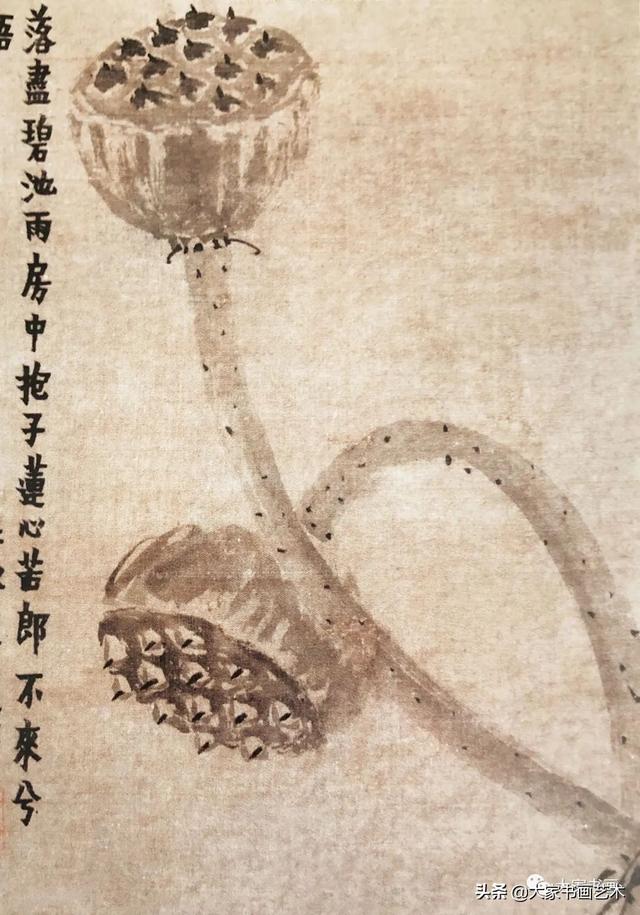 落盡碧池雨房中抱子蓮心苦郎不來兮
大家书画
头条 @大家书画艺术